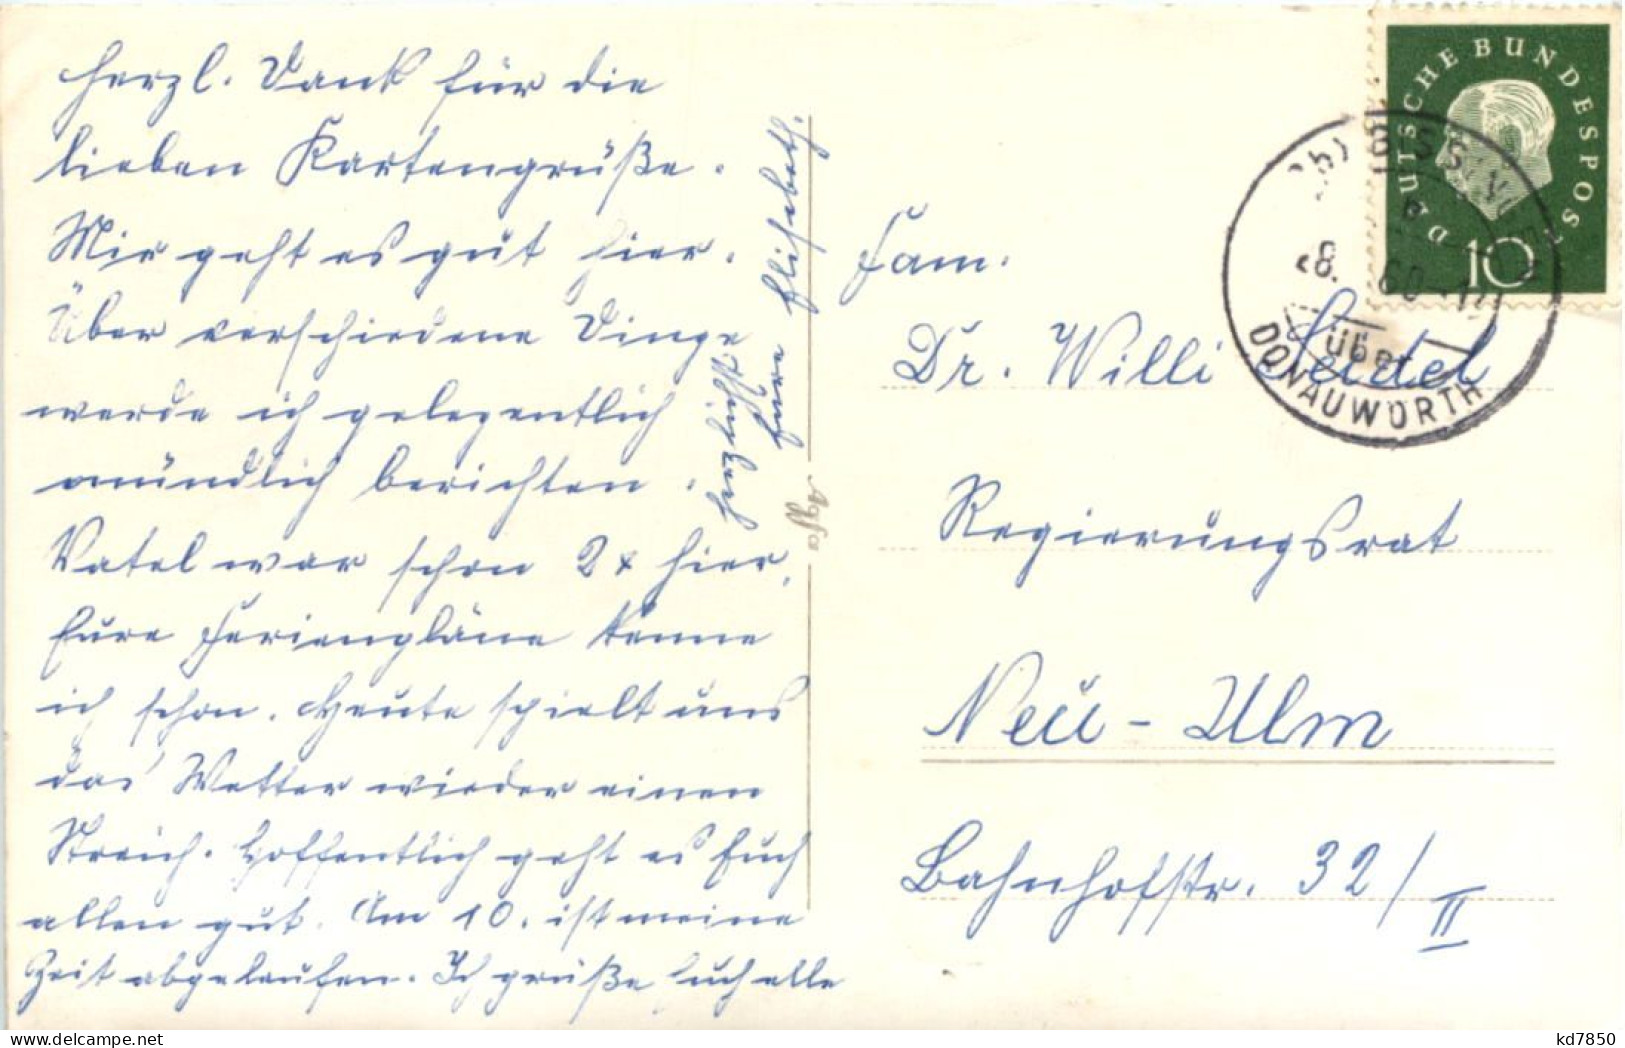 Herzl. Dank für die
lieben Kartengrüße.
Mir geht es gut hier.
Über verschiedene Dinge
werde ich gelegentlich
mündlich berichten.
Vatel war schon 2 x hier,
Eure Ferienpläne kenne
ich schon. Heute spielt uns
das Wetter wieder einen
Streich. Hoffentlich geht es Euch
allen gut. Am 10. ist meine
Zeit abgelaufen. Ich grüße Euch alle
herzlichst
Eure Elisabeth.
Agfa
DEUTSCHE BUNDESPOST
10
28. 60-17
über
DONAUWÖRTH
Fam.
Dr. Willi Seidel
Regierungsrat
Neu-Ulm
Bahnhofstr. 32/II
kd7850